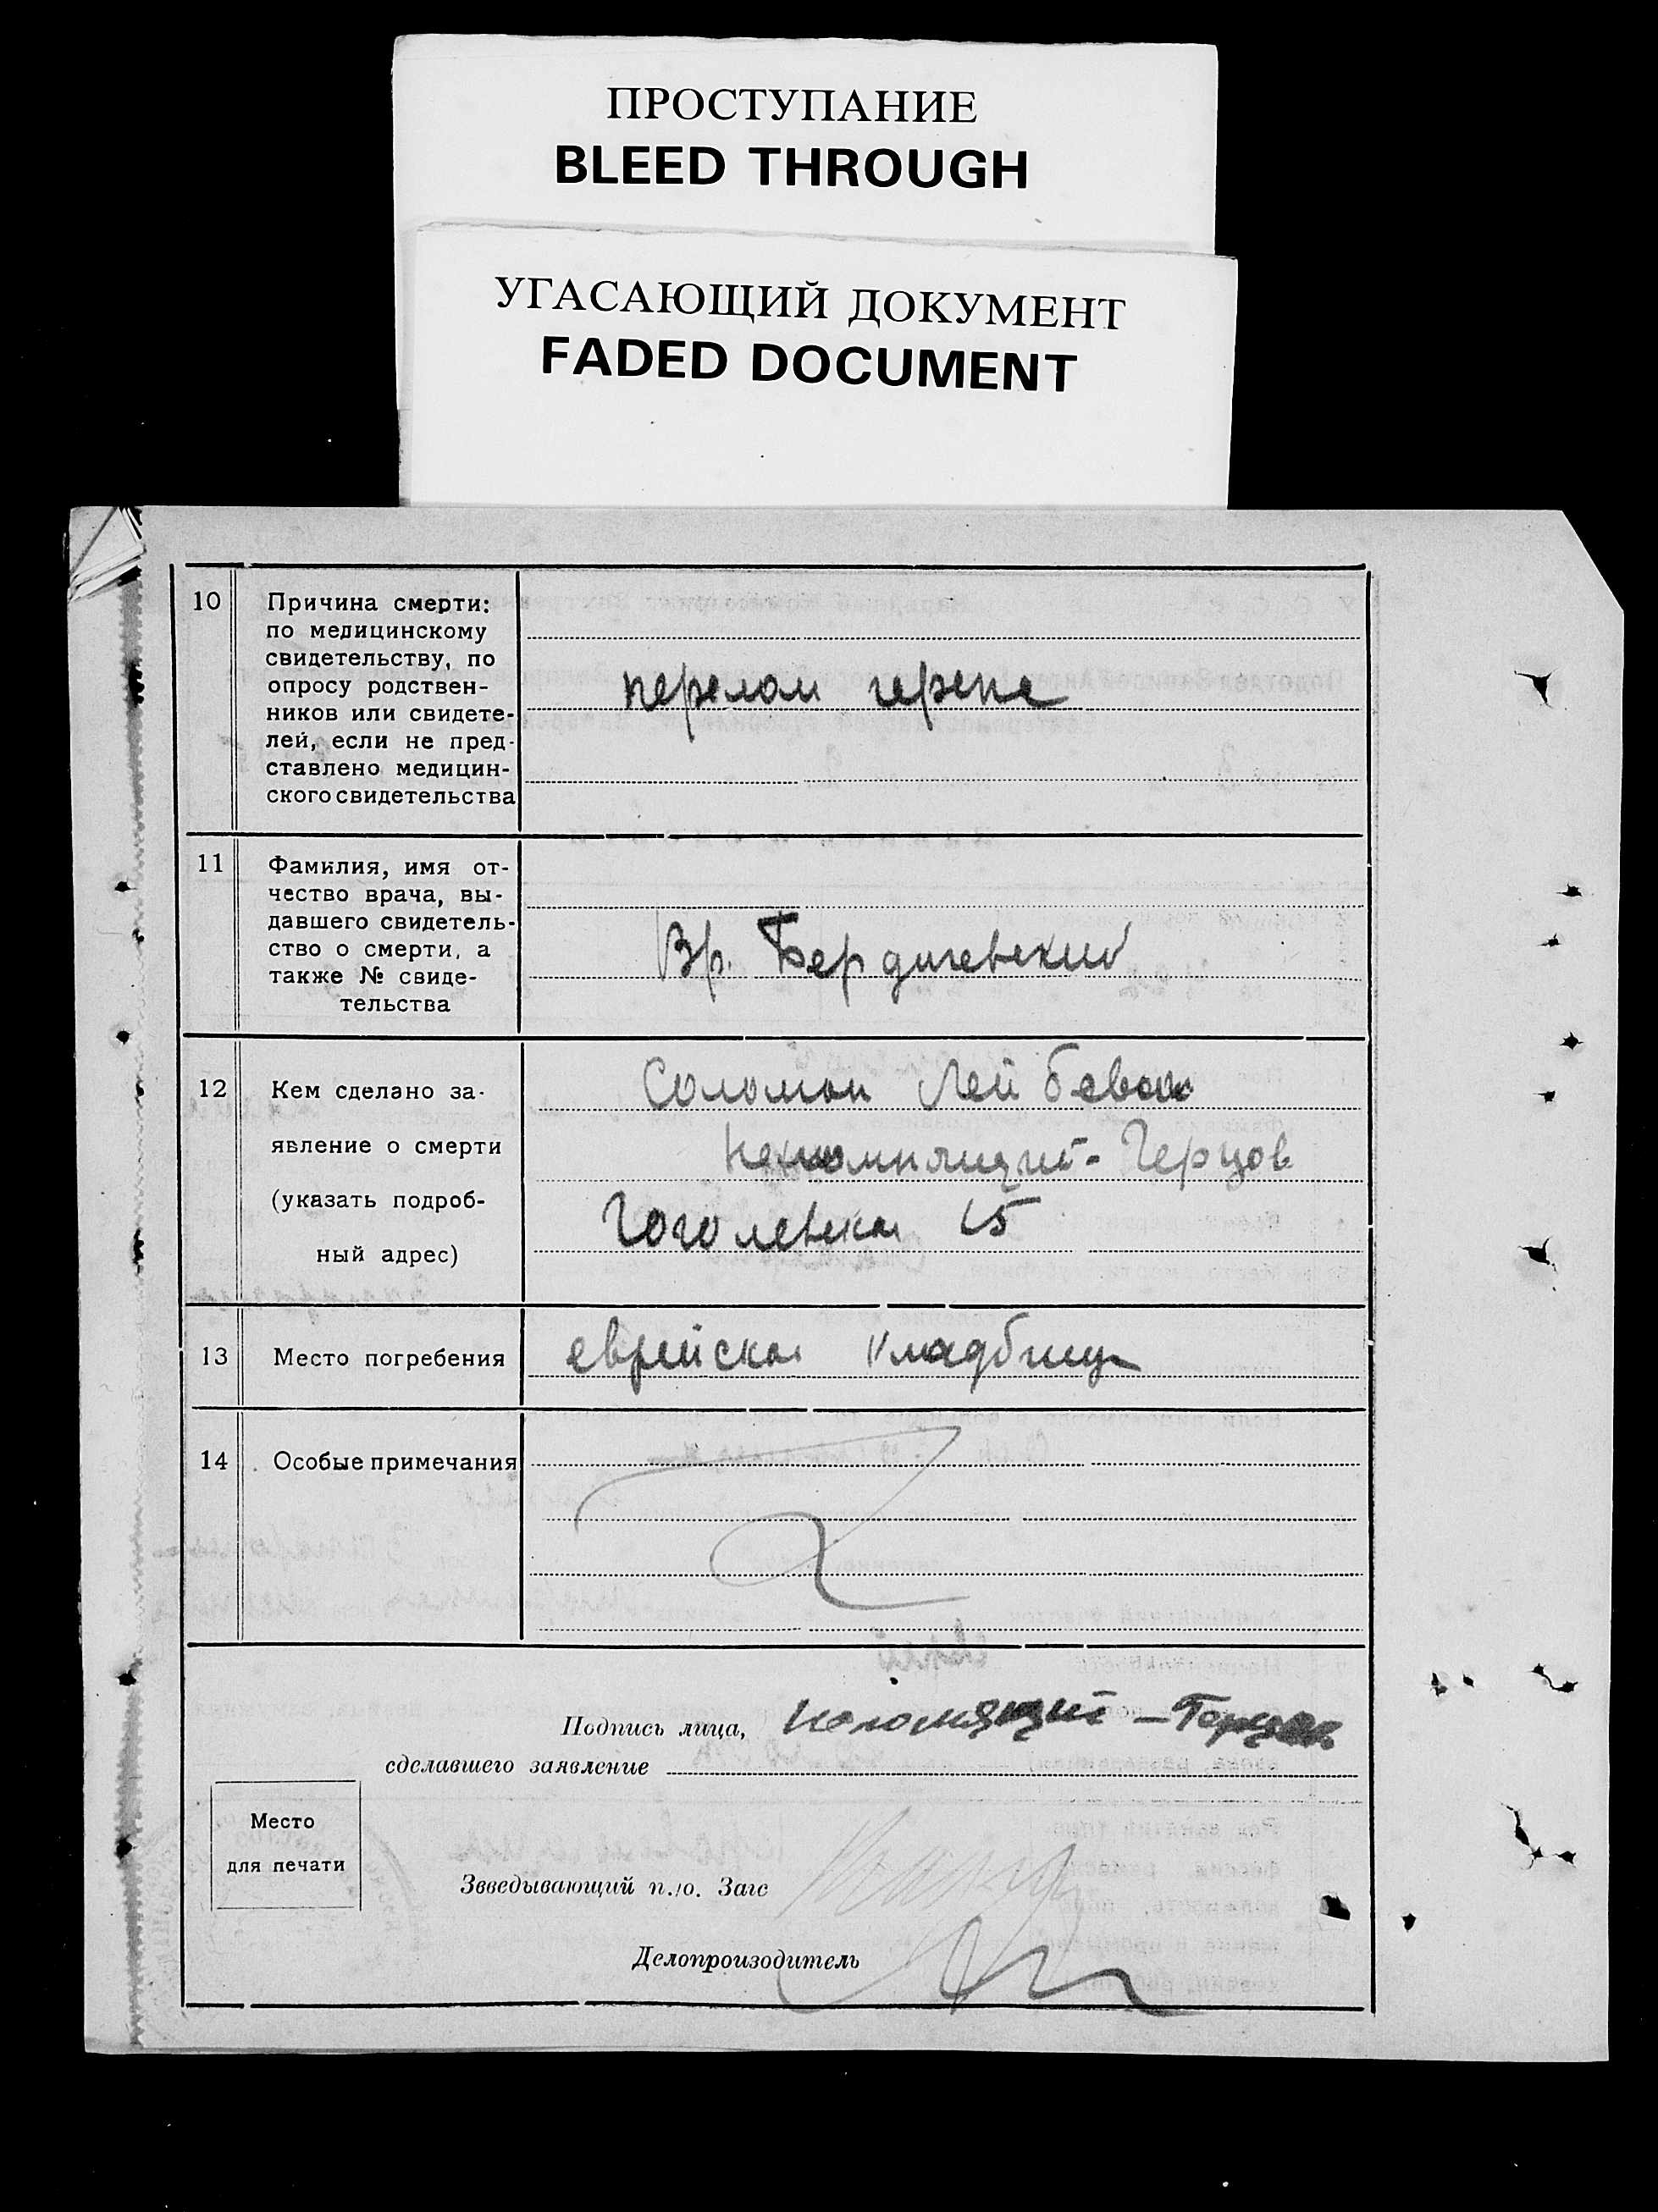 ПРОСТУПАНИЕ
BLEED THROUGH
УГАСАЮЩИЙ ДОКУМЕНТ
FADED DOCUMENT
10
Причина смерти:
по медицинскому
свидетельству, по
опросу родствен-
ников или свидете-
лей, если не пред-
ставлено медицин-
ского свидетельства
перелом черепа
11
Фамилия, имя от-
чество врача, вы-
давшего свидетель-
ство о смерти, а
также № свиде-
тельства
Вр. Бердичевский
12
Кем сделано за-
явление о смерти
(указать подроб-
ный адрес)
Соломон Лейбович
Герцов
Гоголевская 15
13
Место погребения
еврейская кладбище
14
Особые примечания
Подпись лица,
сделавшего заявление
Место
для печати
Звведывающий п./о. Загс
Делопроизодитель